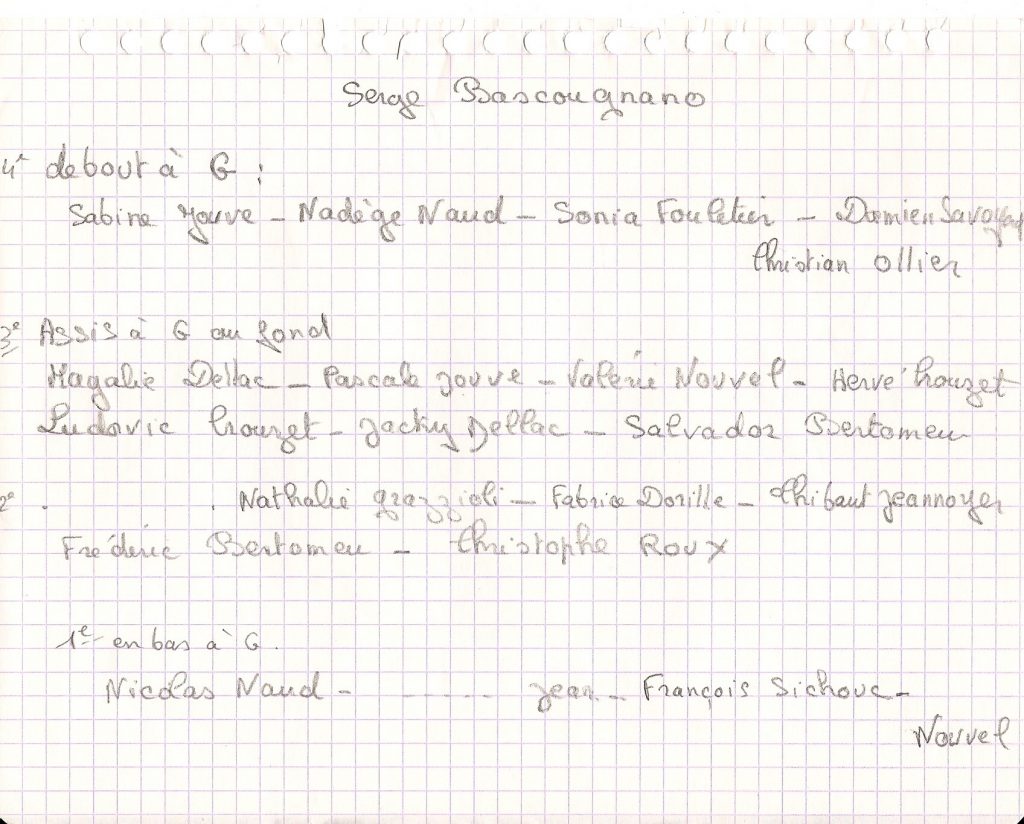 Serge Bascougnano
4e debout à G :
Sabine Jouve - Nadège Naud - Sonia Fouletier - Damien Savoyen
Christian Ollier
3e Assis à G au fond
Magalie Dellac - Pascale Jouve - Valérie Nouvel - Hervé Crouzet
Ludovic Crouzet - Jacky Dellac - Salvador Bertomeu
2e . . Nathalie Grazzioli - Fabrice Dorille - Thibaut Jeannoyer
Frédéric Bertomeu - Christophe Roux
1e en bas à G.
Nicolas Naud - ...... Jean - François Sichouc -
Nouvel